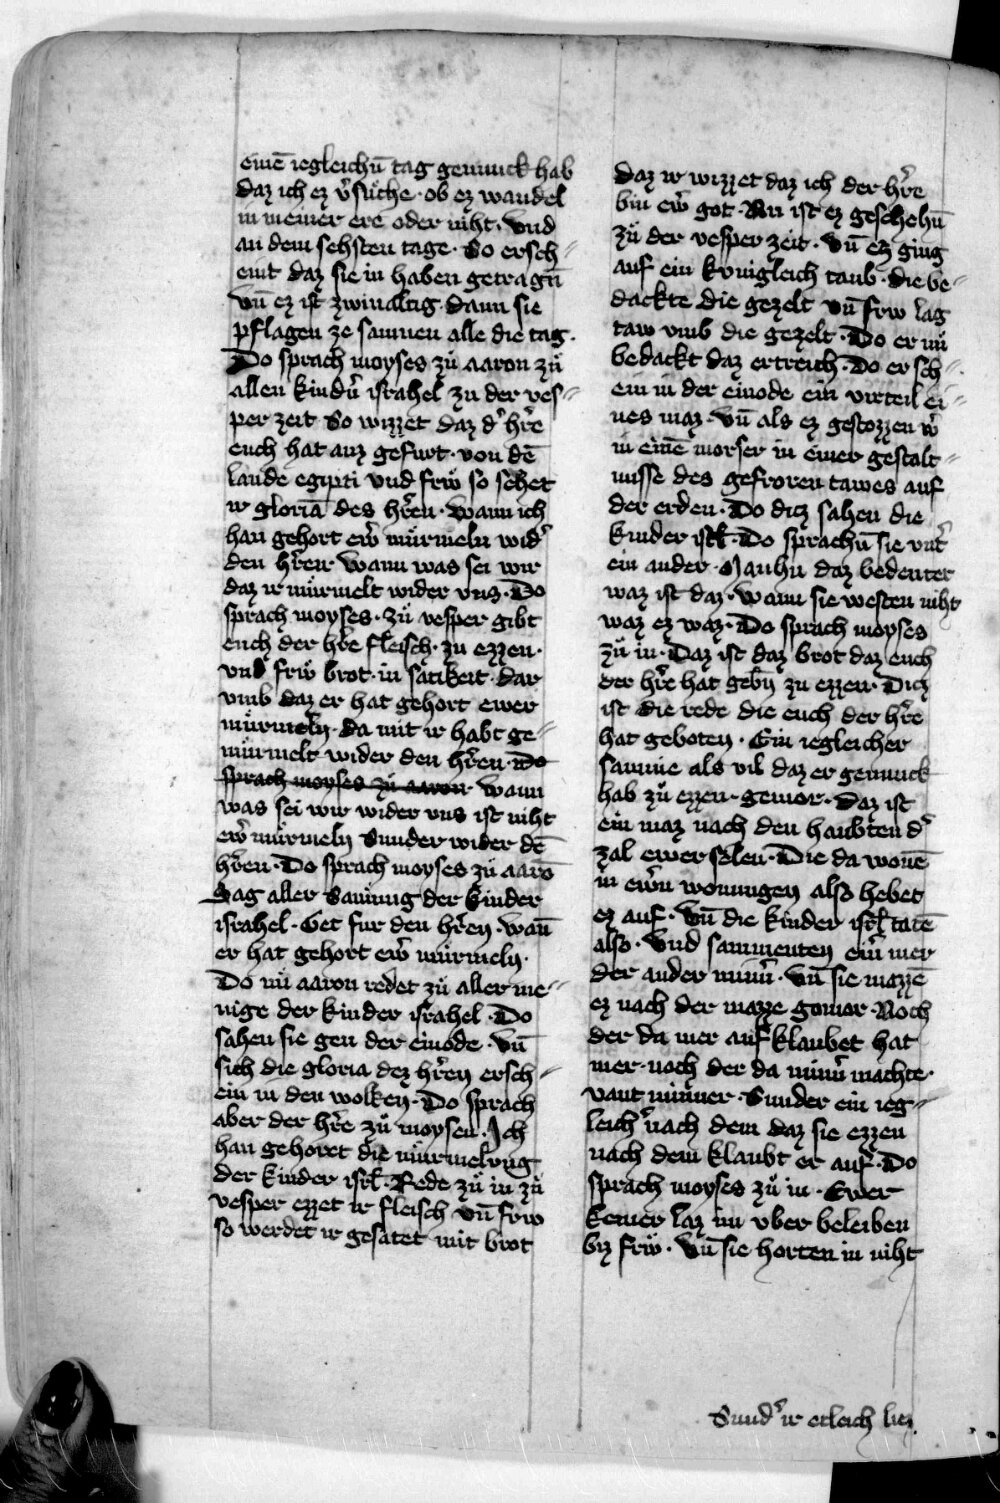 einē iegleichñ tag genuuck hab
daz ich ez v͛suͤche · ob ez wandel
in meiner ere oder niht · Vnd
an dem sehsten tage · So ersch〃
eint daz sie in haben getragñ
Vñ ez ist zwiualtig dann sie
pflagen ze samnen alle die tag ·
Do sprach moyses zuͤ aaron zuͤ
allen kindn͛ israhel zu der ves〃
per zeit So wizzet daz d͛ hr͛e
euch hat auz gefurt · von dē
lande egipti vnd fruͤ so sehet
ir gloriā des hr͛en · Wann ich
han gehort ew͛ muͤrmeln wid͛
den hr͛en · Wann was sei wir
daz ir muͤrmelt wider vns · Do
sprach moyses · zuͤ vesper gibt
euch der hr͛e fleisch · zu ezzen ·
vnd fruͤ brot · in satikeit · dar
vmb daz er hat gehort ewer
muͤrmeln · da mit ir habt ge〃
muͤrmelt wider den hr͛en · Do
sprach moyses zuͤ aaron · Wann
was sei wir wider vns ist niht
ew͛ muͤrmeln Sunder wider dē
hr͛en · Do sprach moyses zuͤ aarō
Sag aller samnug der kinder
israhel · Get fur den hr͛en · wañ
er hat gehort ew͛ muͤrmeln ·
Do nuͤ aaron redet zuͤ aller me〃
nige der kinder israhel · Do
sahen sie gen der einode · Vñ
sich die gloria dez hr͛en ersch〃
ein in den wolken · Do sprach
aber der hr͛e zuͤ moysen · Ich
han gehoret die muͤrmelung
der kinder isrł · Rede zuͤ in zuͤ
vesper ezzet ir fleisch vñ frw
so werdet ir gesatet mit brot
daz ir wizzet daz ich der hr͛e
bin ew͛ got · Nu ist ez geschehñ
zuͤ der vesper zeit · Vñ ez ging
auf ein kunigleich taub · die be〃
dackte die gezelt vñ frw lag
taw vmb die gezelt · Do er nuͤ
bedackt daz ertreich · Do er sch〃
ein in der einode ein virteil ei〃
nes maz · vñ als ez gestozzen w͛
in einē morser in einer gestalt〃
nusse des gefroren tawes auf
der erden · Do diz sahen die
kinder isrł · Do sprachñ sie vnt͛
ein ander · Manhu daz bedeutet
waz ist daz · wann sie westen niht
waz ez waz · Do sprach moyses
zuͤ in · Daz ist daz brot daz euch
der hr͛e hat gebn̄ zu ezzen · Diz
ist die rede die euch der hr͛e
hat geboten · Ein iegleicher
samne als vil daz er genuuck
hab zuͤ ezzen · gemor · daz ist
ein maz nach den haubten d͛
zal ewer selen · Die da wonē
in ewn͛ wonungen also hebet
ez auf · Vñ die kinder isrł tatē
also · Vnd sammenten ein͛ mer
der ander minn͛ · Vñ sie mazzē
ez nach der mazze gomor · Noch
der da mer auf klaubet hat
mer · noch der da minn͛ machte ·
vant minner · Sunder ein ieg〃
leich͛ nach dem daz sie ezzen
nach dem klaubt er auf · Do
sprach moyses zuͤ in · Ewer
keiner laz im vber beleiben
biz fruͤ · Vñ sie horten in niht
Sund͛ ir etleich liez